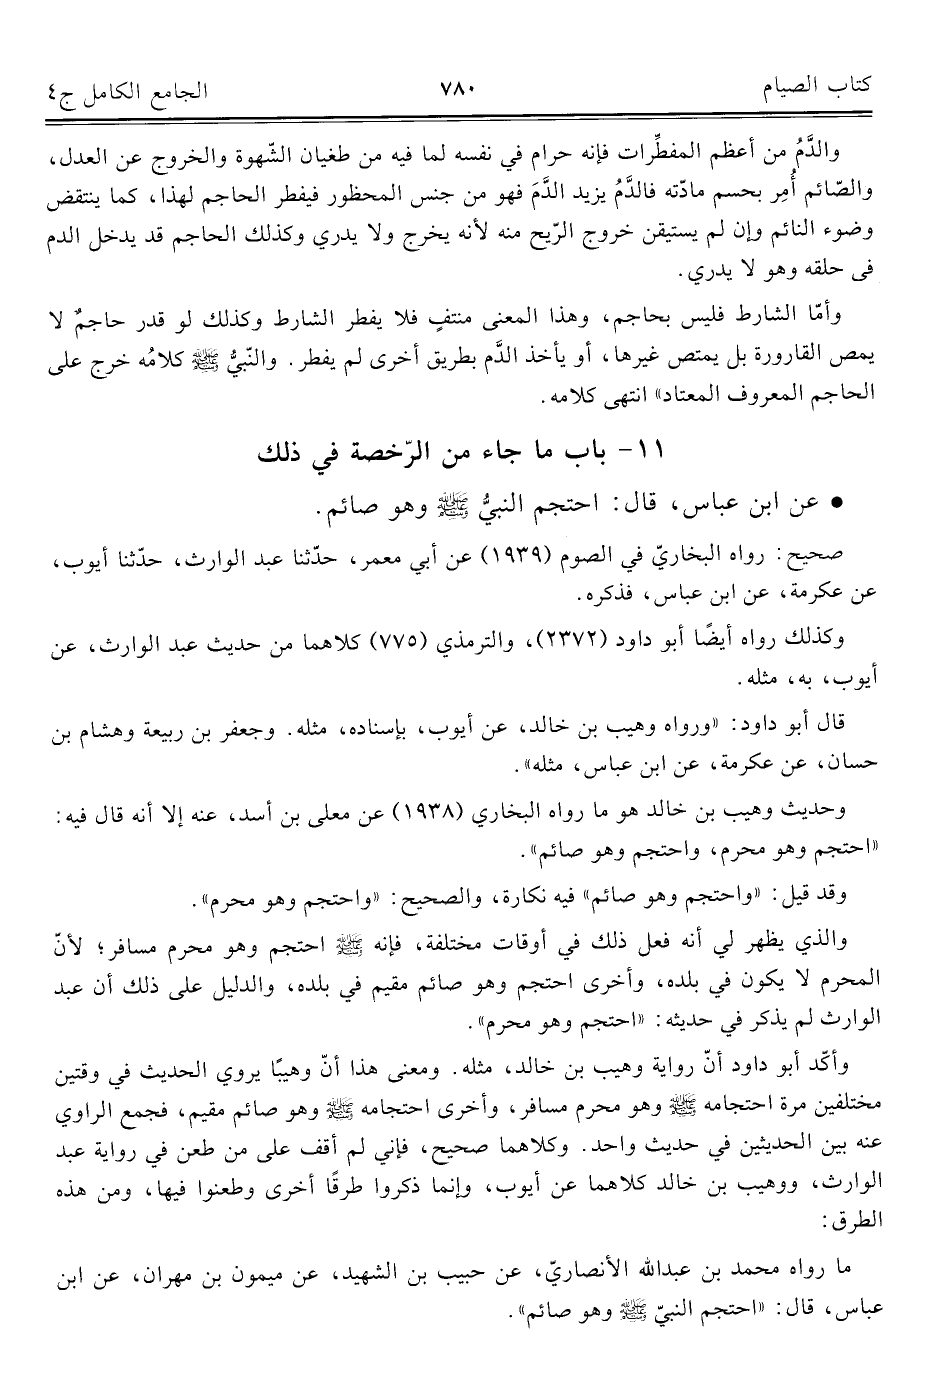 كتاب الصيام ٧٨٠ الجامع الكامل ج٤
والدَّمُ من أعظم المفطِّرات فإنه حرام في نفسه لما فيه من طغيان الشّهوة والخروج عن العدل،
والصّائم أُمِر بحسم مادّته فالدَّمُ يزيد الدَّمَ فهو من جنس المحظور فيفطر الحاجم لهذا، كما ينتقض
وضوء النائم وإن لم يستيقن خروج الرّيح منه لأنه يخرج ولا يدري وكذلك الحاجم قد يدخل الدم
فى حلقه وهو لا يدري.
وأمّا الشارط فليس بحاجم، وهذا المعنى منتفٍ فلا يفطر الشارط وكذلك لو قدر حاجمٌ لا
يمص القارورة بل يمتص غيرها، أو يأخذ الدَّم بطريق أخرى لم يفطر. والنّبيُّ ﷺ كلامُه خرج على
الحاجم المعروف المعتاد» انتهى كلامه.
١١- باب ما جاء من الرّخصة في ذلك
• عن ابن عباس، قال: احتجم النبيُّ ﷺ وهو صائم.
صحيح: رواه البخاريّ في الصوم (١٩٣٩) عن أبي معمر، حدّثنا عبد الوارث، حدّثنا أيوب،
عن عكرمة، عن ابن عباس، فذكره.
وكذلك رواه أيضًا أبو داود (٢٣٧٢)، والترمذي (٧٧٥) كلاهما من حديث عبد الوارث، عن
أيوب، به، مثله.
قال أبو داود: «ورواه وهيب بن خالد، عن أيوب، بإسناده، مثله. وجعفر بن ربيعة وهشام بن
حسان، عن عكرمة، عن ابن عباس، مثله».
وحديث وهيب بن خالد هو ما رواه البخاري (١٩٣٨) عن معلى بن أسد، عنه إلا أنه قال فيه:
«احتجم وهو محرم، واحتجم وهو صائم».
وقد قيل: «واحتجم وهو صائم» فيه نكارة، والصحيح: «واحتجم وهو محرم».
والذي يظهر لي أنه فعل ذلك في أوقات مختلفة، فإنه ﷺ احتجم وهو محرم مسافر؛ لأنّ
المحرم لا يكون في بلده، وأخرى احتجم وهو صائم مقيم في بلده، والدليل على ذلك أن عبد
الوارث لم يذكر في حديثه: «احتجم وهو محرم».
وأكّد أبو داود أنّ رواية وهيب بن خالد، مثله. ومعنى هذا أنّ وهيبًا يروي الحديث في وقتين
مختلفين مرة احتجامه ﷺ وهو محرم مسافر، وأخرى احتجامه ﷺ وهو صائم مقيم، فجمع الراوي
عنه بين الحديثين في حديث واحد. وكلاهما صحيح، فإني لم أقف على من طعن في رواية عبد
الوارث، ووهيب بن خالد كلاهما عن أيوب، وإنما ذكروا طرقًا أخرى وطعنوا فيها، ومن هذه
الطرق:
ما رواه محمد بن عبدالله الأنصاريّ، عن حبيب بن الشهيد، عن ميمون بن مهران، عن ابن
عباس، قال: «احتجم النبيّ ﷺ وهو صائم».